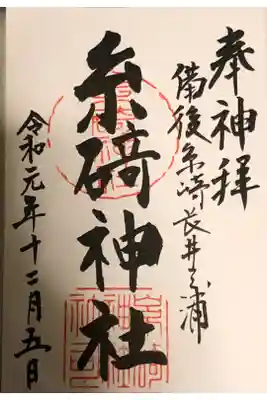 奉神拝
備後糸崎長井之浦
糸碕神社
令和元年十二月五日